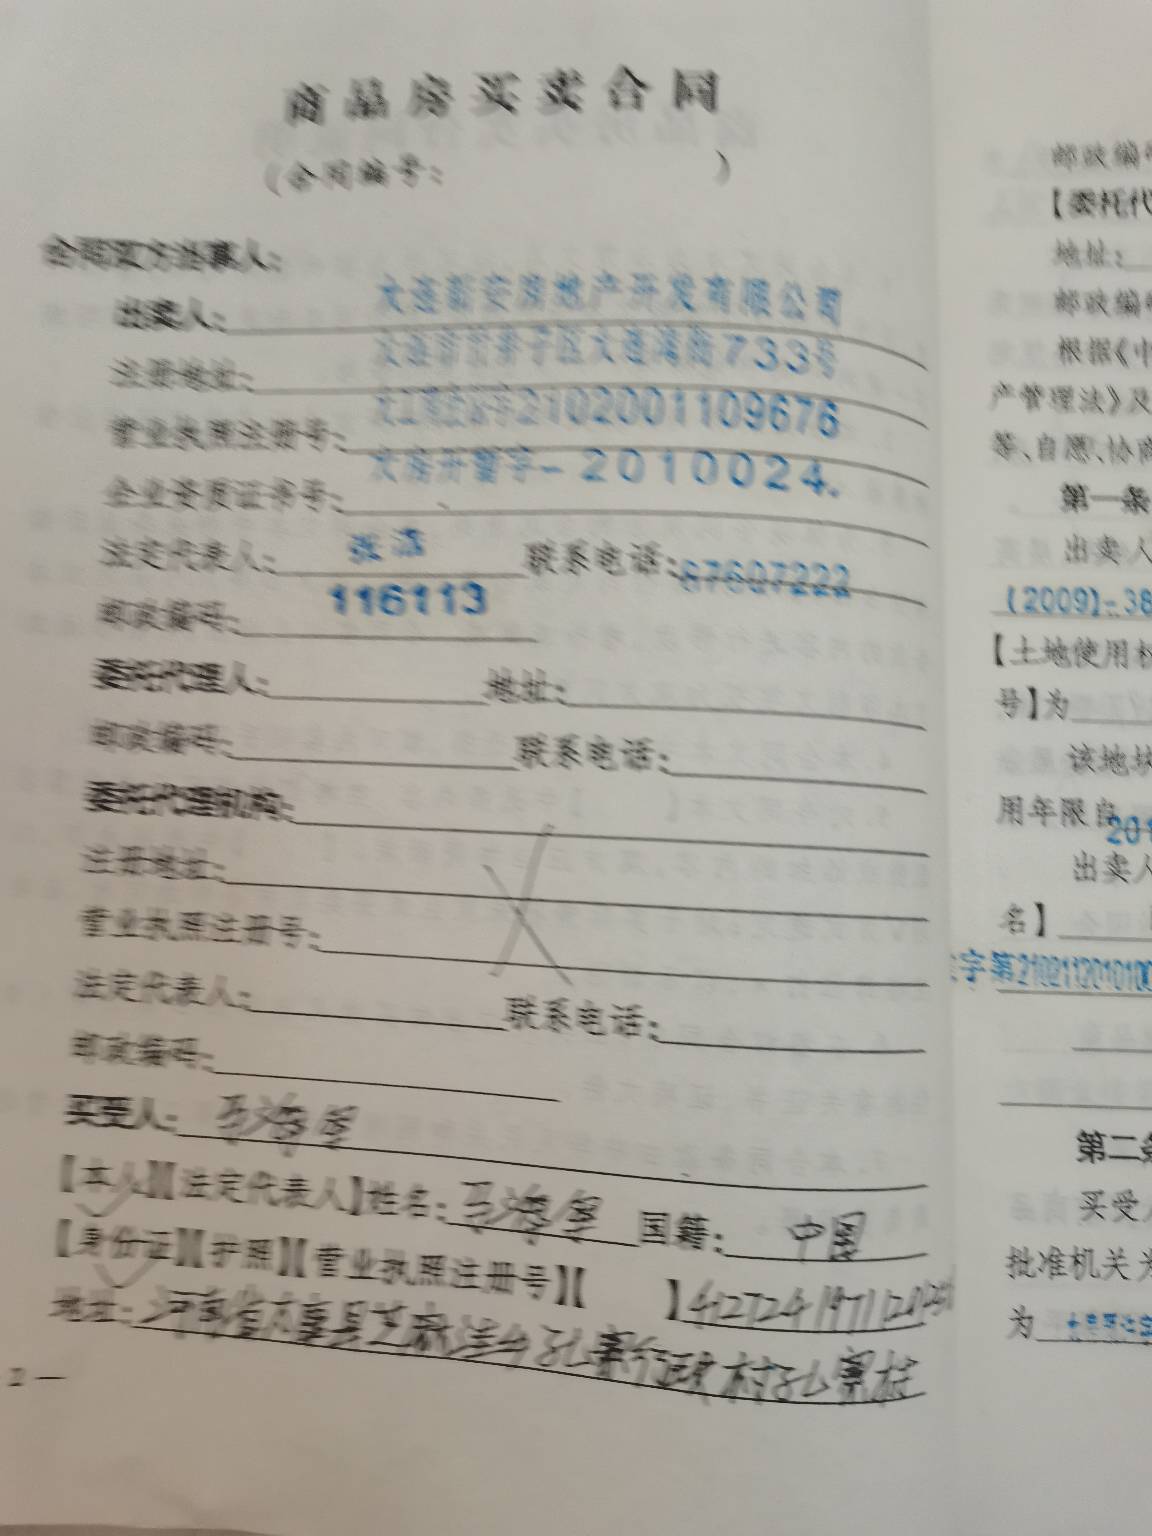 商品房买卖合同
（合同编号： ）
合同双方当事人：
出卖人：大连新安房地产开发有限公司
注册地址：大连市甘井子区大连湾街733号
营业执照注册号：大工商企法字2102001109676
企业资质证书号：大房开暂字-2010024.
法定代表人：张 联系电话：87607222
邮政编码：116113
委托代理人： 地址：
邮政编码： 联系电话：
委托代理机构：
注册地址：
营业执照注册号：
法定代表人： 联系电话：
邮政编码：
买受人：
【本人】【法定代表人】姓名： 国籍：中国
【身份证】【护照】【营业执照注册号】【 】
地址：河南省 县 乡孔寨行政村孔寨村
2 —
邮政编
【委托代
地址：
邮政编
根据《中
产管理法》及
等、自愿、协商
第一条
出卖人
(2009)-38
【土地使用权
号】为
该地块
用年限自201
出卖人
名】
字第2102112010100
第二条
买受人
批准机关为
为